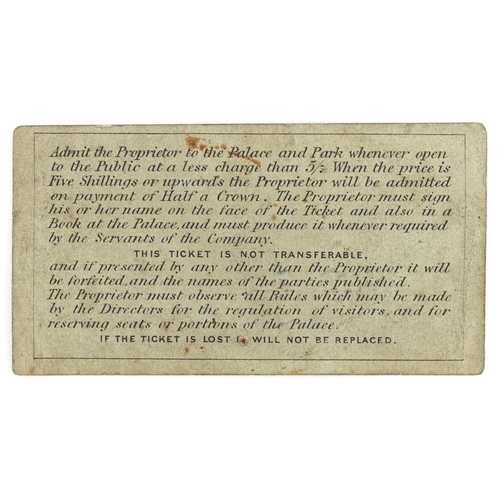 Admit the Proprietor to the Palace and Park whenever open
to the Public at a less charge than 5/- When the price is
Five Shillings or upwards the Proprietor will be admitted
on payment of Half a Crown. The Proprietor must sign
his or her name on the face of the Ticket and also in a
Book at the Palace, and must produce it whenever required
by the Servants of the Company.
THIS TICKET IS NOT TRANSFERABLE,
and if presented by any other than the Proprietor it will
be forfeited, and the names of the parties published.
The Proprietor must observe all Rules which may be made
by the Directors for the regulation of visitors, and for
reserving seats or portions of the Palace.
IF THE TICKET IS LOST IT WILL NOT BE REPLACED.